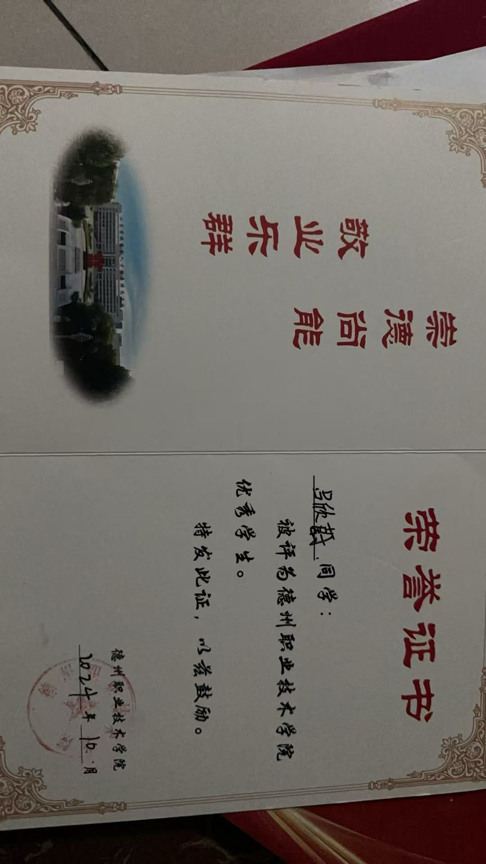 崇德尚能
敬业乐群
荣誉证书
同学：
被评为德州职业技术学院
优秀学生。
特发此证，以兹鼓励。
德州职业技术学院
2024年10月